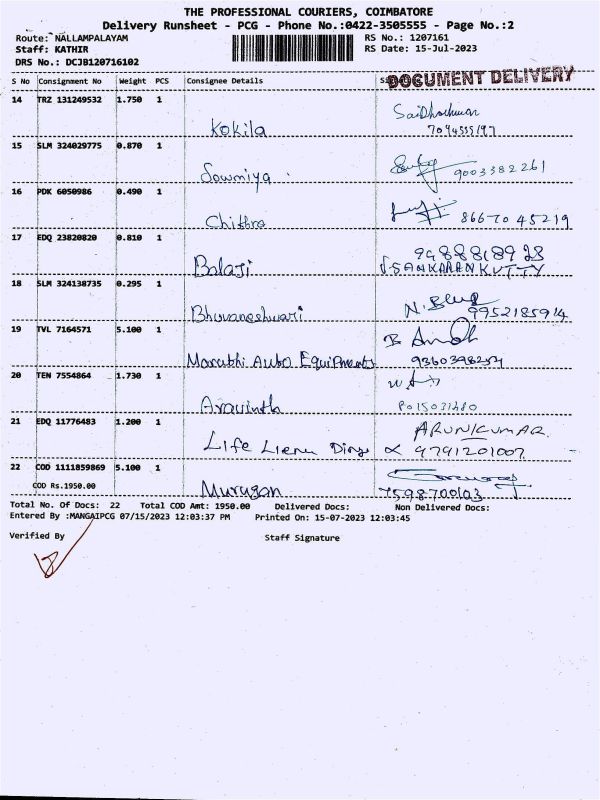 THE PROFESSIONAL COURIERS, COIMBATORE
Delivery Runsheet - PCG - Phone No.:0422-3505555 - Page No.:2
Route: NALLAMPALAYAM RS No.: 1207161
Staff: KATHIR RS Date: 15-Jul-2023
DRS No.: DCJB120716102
DOCUMENT DELIVERY
S No Consignment No Weight PCS Consignee Details
14 TRZ 131249532 1.750 1
Kokila
15 SLM 324029775 0.870 1
Sowmiya 9003382261
16 PDK 6050986 0.490 1
Chithra 86670 45219
17 EDQ 23820820 0.810 1
Balaji SANKARANKUTTY
18 SLM 324138735 0.295 1
Bhuvaneshwari 9952185914
19 TVL 7164571 5.100 1
Maruthi Auto Equipments
20 TEN 7554864 1.730 1
Aravinth
21 EDQ 11776483 1.200 1 ARUNKUMAR
Life 9791201007
22 COD 1111859869 5.100 1
COD Rs.1950.00
Murugan 7598700103
Total No. Of Docs: 22 Total COD Amt: 1950.00 Delivered Docs: Non Delivered Docs:
Entered By :MANGAIPCG 07/15/2023 12:03:37 PM Printed On: 15-07-2023 12:03:45
Verified By Staff Signature